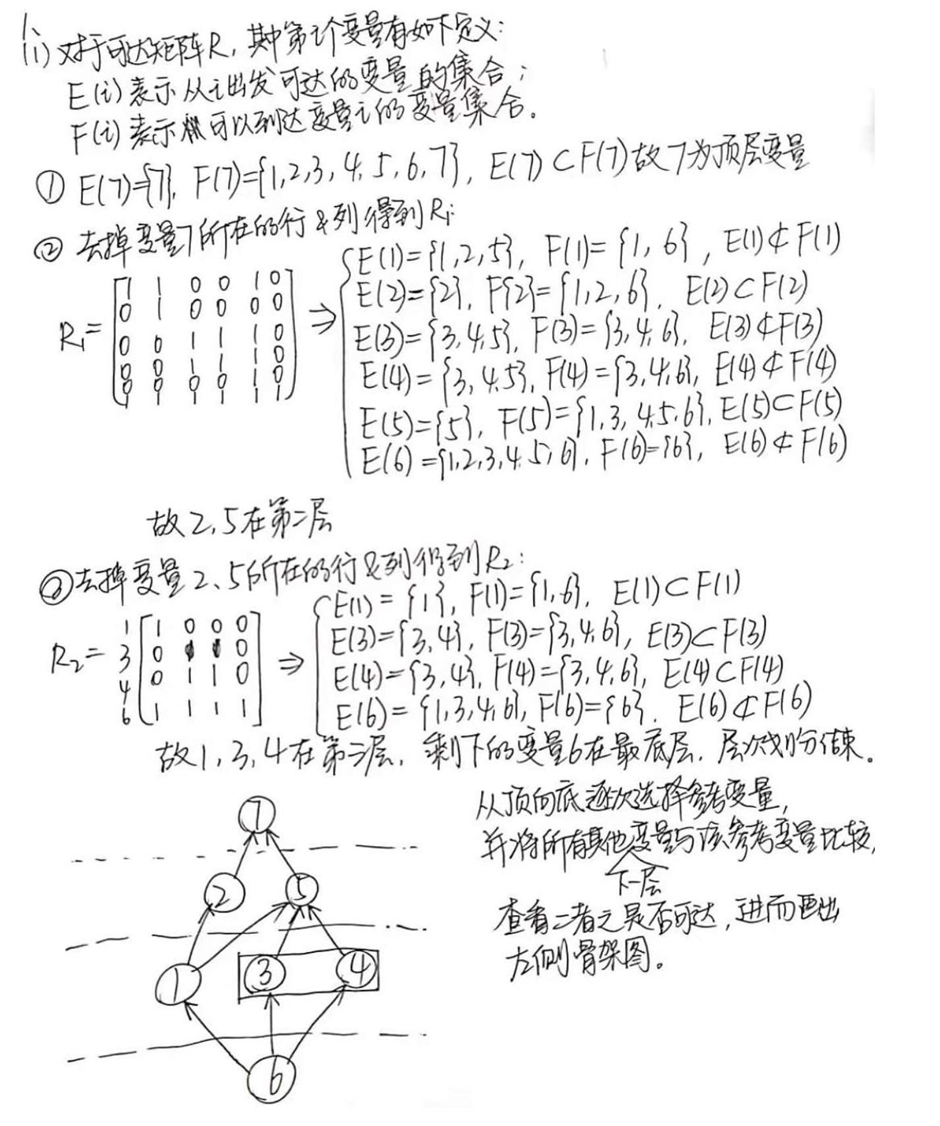 1.
(1) 对于可达矩阵R,其中第i个变量有如下定义:
E(i)表示从i出发可达的变量的集合;
F(i)表示可以到达变量i的变量集合。
① E(7)={7}, F(7)={1,2,3,4,5,6,7}, E(7)⊂F(7)故7为顶层变量
② 去掉变量7所在的行&列得到R₁:
R₁=
1 1 0 0 1 0
0 1 0 0 0 0
0 0 1 1 1 0
0 0 1 1 1 0
0 0 0 0 1 0
1 1 1 1 1 1
⇒
E(1)={1,2,5}, F(1)={1,6}, E(1)⊄F(1)
E(2)={2}, F{2}={1,2,6}, E(2)⊂F(2)
E(3)={3,4,5}, F(3)={3,4,6}, E(3)⊄F(3)
E(4)={3,4,5}, F(4)={3,4,6}, E(4)⊄F(4)
E(5)={5}, F(5)={1,3,4,5,6}, E(5)⊂F(5)
E(6)={1,2,3,4,5,6}, F(6)={6}, E(6)⊄F(6)
故2,5在第二层
③去掉变量2、5所在的行&列得到R₂:
R₂=
1 1 0 0 0
3 0 1 1 0
4 0 1 1 0
6 1 1 1 1
⇒
E(1)={1}, F(1)={1,6}, E(1)⊂F(1)
E(3)={3,4}, F(3)={3,4,6}, E(3)⊂F(3)
E(4)={3,4}, F(4)={3,4,6}, E(4)⊂F(4)
E(6)={1,3,4,6}, F(6)={6}, E(6)⊄F(6)
故1,3,4在第三层,剩下的变量6在最底层,层次划分结束。
7
2 5
1 3 4
6
从顶向底逐次选择参考变量,
并将所有其他变量与该参考变量比较,
下一层
查看二者之是否可达,进而画出
左侧骨架图。